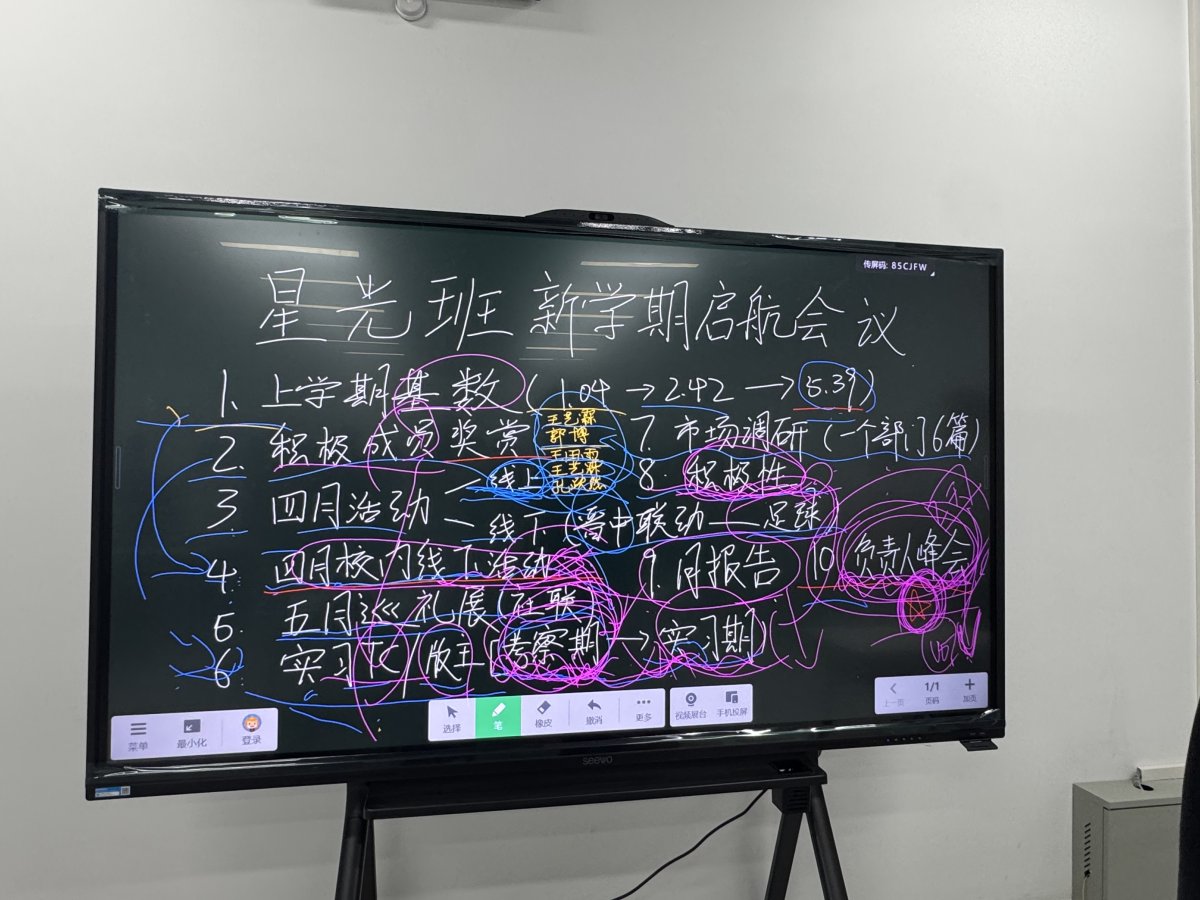 传屏码: 85CJFW
星光班新学期启航会议
1. 上学期基数(1.04→2.42→5.39)
2. 积极成员奖赏
郭博
3 四月活动
线上
线下(晋中联动—足球
4. 四月校内线下活动
5. 五月巡礼展(社联)
6 实习TC/版主[考察期→实习期]
7. 市场调研(一个部门6篇)
8. 积极性
9. 月报告
10 负责人峰会
菜单
最小化
登录
选择
笔
橡皮
撤消
更多
视频展台
手机投屏
上一页
1/1
页码
加页
seewo